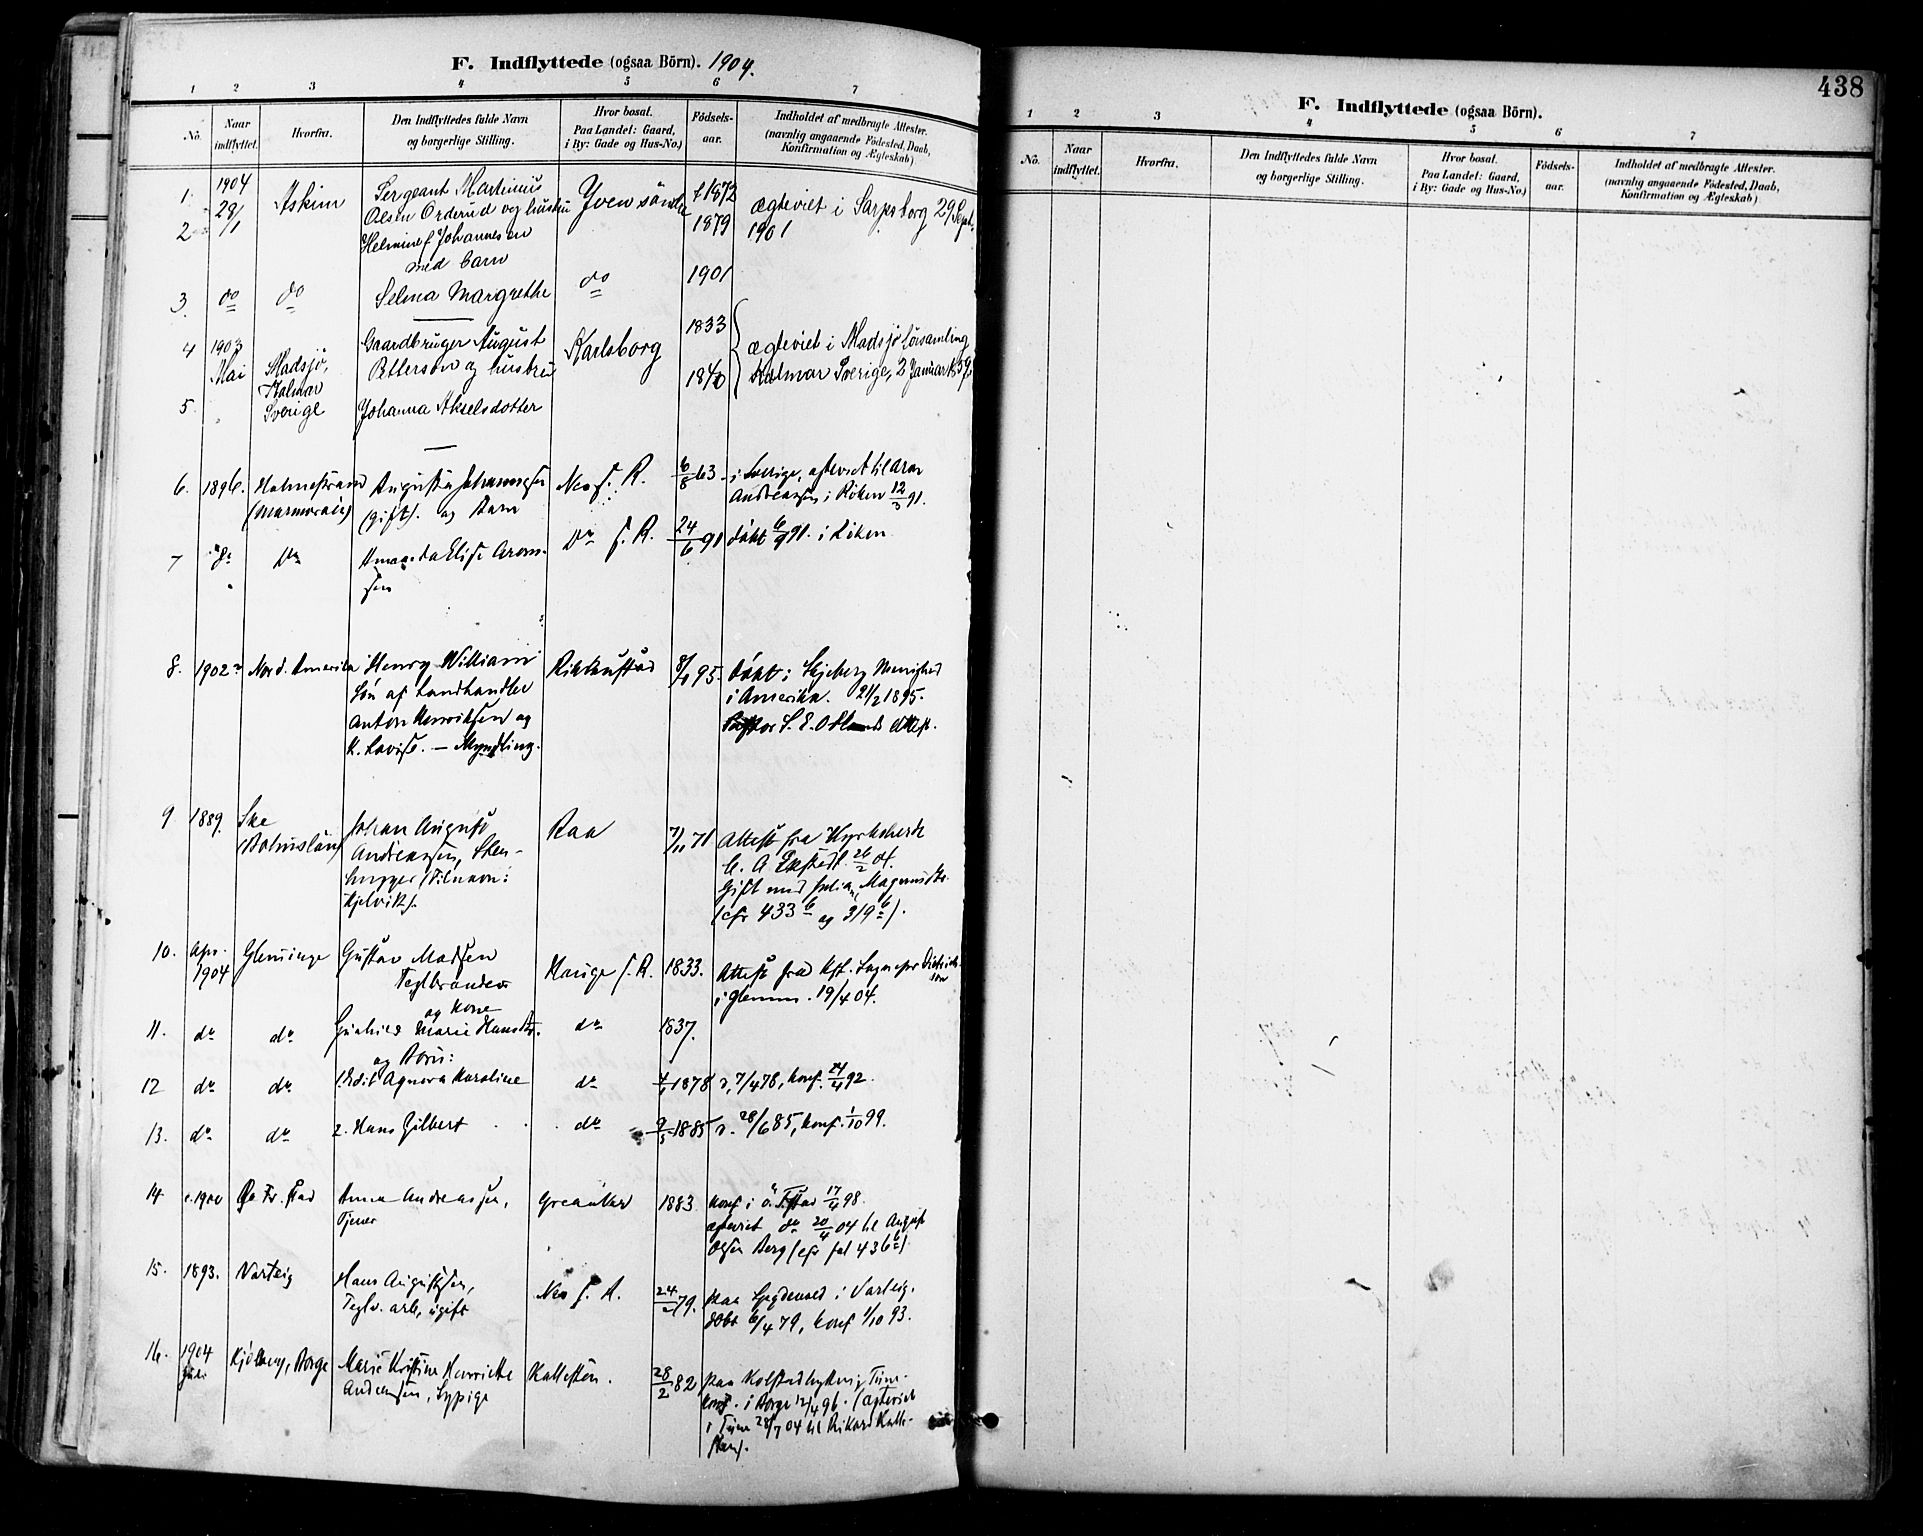 438
F. Indflyttede (ogsaa Börn). 1904.
1 2 3 4 5 6 7
No.
Naar indflyttet.
Hvorfra.
Den Indflyttedes fulde Navn
og borgerlige Stilling.
Hvor bosat.
Paa Landet: Gaard,
i By: Gade og Hus-No.)
Födsels-
aar.
Indholdet af medbragte Attester.
(navnlig angaaende Födested, Daab,
Konfirmation og Ægteskab)
1. 1904 28/1 Askim Sergeant Martinius
Olsen Orderud og hustru Yven söndre 1872
ægteviet i Sarpsborg 29 Sept.
1901
2 Helmine Johannesen 1879
med barn
3. do do Selma Margrethe do 1901
4 1903 Mai Madsjö, Kalmar Sverige
Gaardbruger August
Petterson og hustru Karlsborg 1833
ægteviet i Madsjö församling
Kalmar Sverige, 2 Januar
5. Johanna Akselsdotter 1840
6. 1896. Holmestrand
Augusta Johannesen
(gift). og Barn Nes f. R. 6/8 63
i Sverige, ægteviet til Aron
Andreassen i Röken 12/3 91.
7 do do Amanda Elise Aron-
sen do f. R. 24/6 91 döbt 6/9 91. i Röken
8. 1902 Nord. Amerika Henry William
Sön af Landhandler
Anton Henriksen og
H. Lovise. – Myndling. 95.
döbt i Skjeberg Menighed
i Amerika. 21/2 1895.
9 1889. Ske
Johan August
Andreassen, Sten-
hugger
Raa 7/11 71
Attest fra Kyrkoherde
26/2 04.
Gift med Julia Magnusdtr.
(cfr 433 b og 319 b).
10. Apr. 1904 Glemminge Gustav Madsen
Teglbrænder
og Kone
Hauge f. R. 1833.
Attest fra
i Glemm. 19/4 04.
11. do do Marie Hansdtr.
og Börn: do 1837.
12 do do 1. Agnora Karoline do 1878 d. 7/4 78, konf. 24/4 92.
13. do do 2. Hans Gilbert do 9/5 1885 d. 28/6 85, konf. 1/10 99.
14 c. 1900 Ö. Fr. stad Anna Andreassen,
Tjener Greaaker 1883
konf i ö. Fstad 17/4 98.
ægteviet do 20/4 04 til August
Olsen Berg (cfr fol 436 b)
15. 1893. Varteig Hans Augustsen,
Teglv. arb, ugift Nes f. R. 24/2 79.
paa i Varteig.
döbt 6/4 79, konf 1/10 93.
16. 1904 Juli Kjölberg, Borge Marie Kristine Henriette
Andersen, Sypige Kallesten. 28/2 82
paa i Tune
konf. i Borge 12/4 96. (ægteviet
i Tune 28/7 04 til Rikard Kalle-
sten).
F. Indflyttede (ogsaa Börn).
1 2 3 4 5 6 7
No.
Naar indflyttet.
Hvorfra.
Den Indflyttedes fulde Navn
og borgerlige Stilling.
Hvor bosat.
Paa Landet: Gaard,
i By: Gade og Hus-No.)
Födsels-
aar.
Indholdet af medbragte Attester.
(navnlig angaaende Födested, Daab,
Konfirmation og Ægteskab)